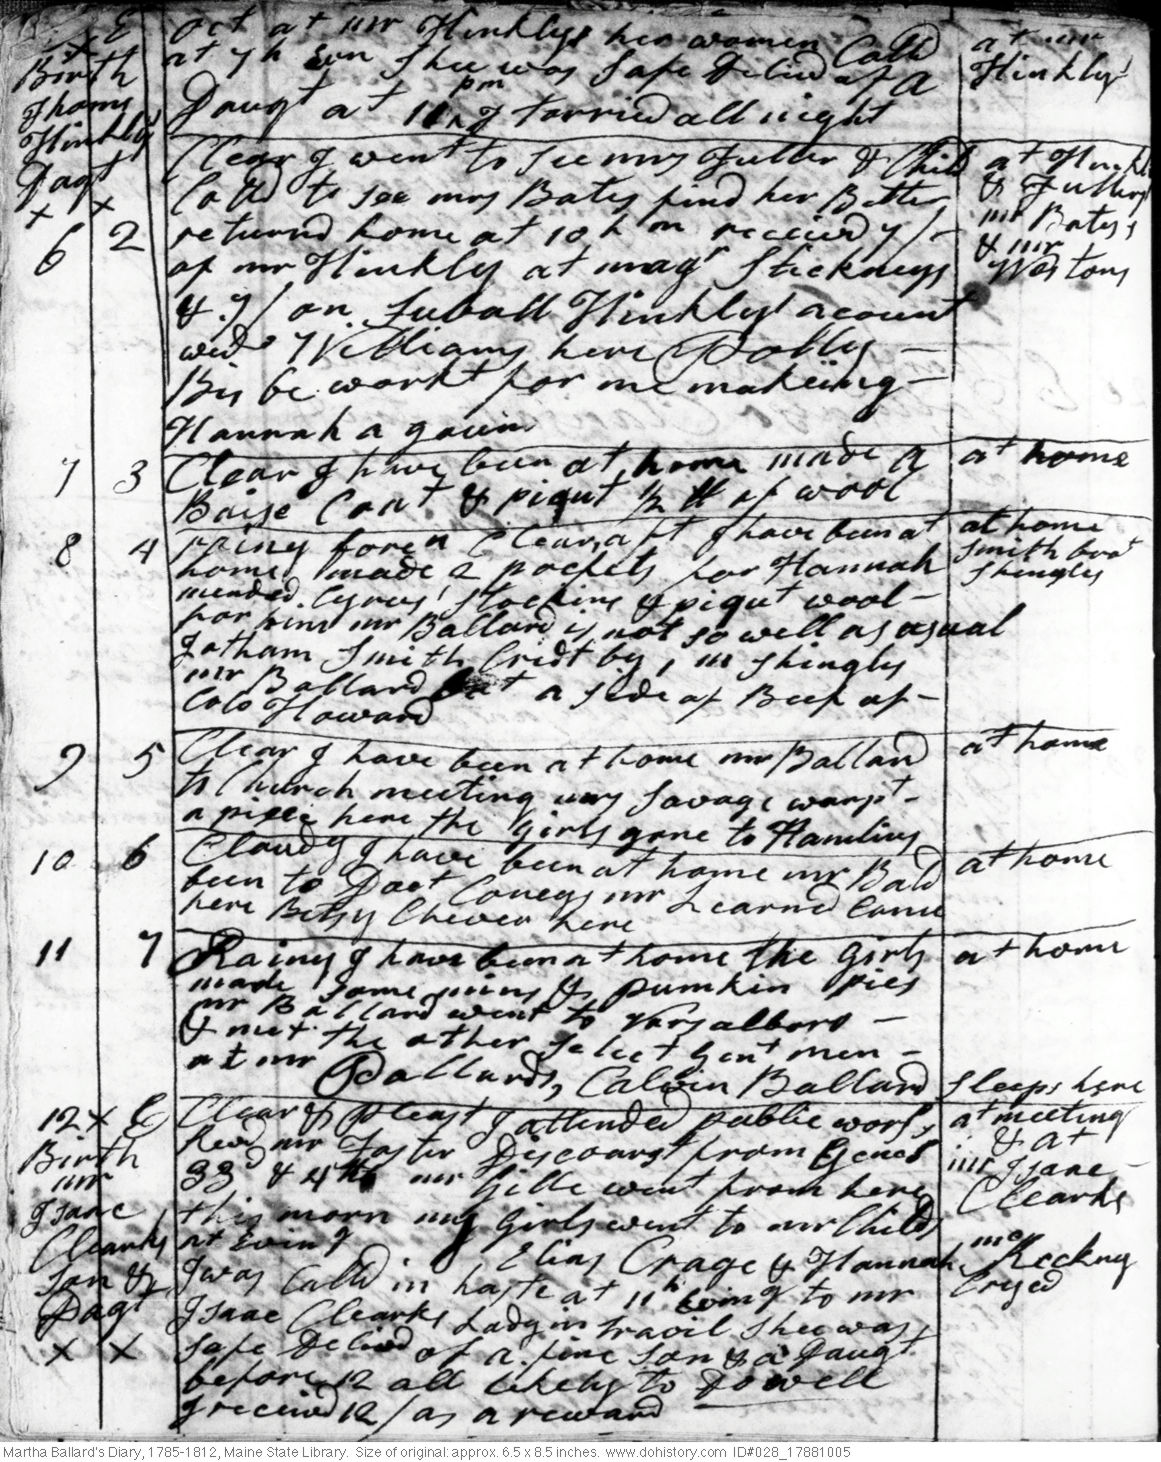 5 E
x
Birth
Thoms
Hinkly's
Dagt
x x
oct at mr Hinklys her women Calld
at 7 h Evn Shee was Safe Delivd of a
Daugt at 11 pm I tarried all night
at mr
Hinkly's
6 2
Clear I went to See mrs Fuller & Child
Calld to see mrs Bates find her Better
returnd home at 10 h m receivd 7/ -
of mr Hinkly at magr Stickneys
& 7/ on Suball Hinkly's account
wido Williams here Polly -
Bisbe workt for me makeiing -
Hannah a gouin
at Hinkly
& Fullers
mr Bates's
& mr
Westons
7 3
Clear I have been at home made a
Baise Coat & piqut 1/2 lb of wool
at home
8 4
rainy foren Clear aft I have been at
home made 2 pockets for Hannah
mended Cyrus' Stockins & piqut wool -
for him mr Ballard is not so well as usual
Jotham Smith Cridt by 1 m shingles
mr Ballard a side of Beef of -
Colo Howard
at home
Smith brot
Shingles
9 5
Clear I have been at home mr Ballard
to Church meeting mrs Savage warpt -
a piece here the girls gone to Hamlins
at home
10 6
Cloudy I have been at home mr Balld
been to Doct Conys mr Learned Came
here Betsy Chever here
at home
11 7
Rainy I have been at home the girls
made some mins & pumkin pies
mr Ballard went to Varsalboro -
& met the other Select gent men -
at mr Ballards, Calvin Ballard Sleeps here
at home
12 x E
Birth
mr
Isaac
Clearks
Son &
Dagt
x x
Clear & pleast I attended public wors,
Revd mr Foster Discourst from Genes
33d & 4th mr Gille went from here
this morn my girls went to mr Childs
at Evng Elias Crage & Hannah
I was Calld in haste at 11 h Evng to mr
Isaac Clearks Lady in Travil Shee was
safe Delivd of a fine Son & a Daugt
before 12 all likely to do well
I receivd 12/ as a reward
at meeting
& at
mr Isaac
Clearks
mc Keckny
Cryed
Martha Ballard's Diary, 1785-1812, Maine State Library. Size of original: approx. 6.5 x 8.5 inches. www.dohistory.com ID#028_17881005